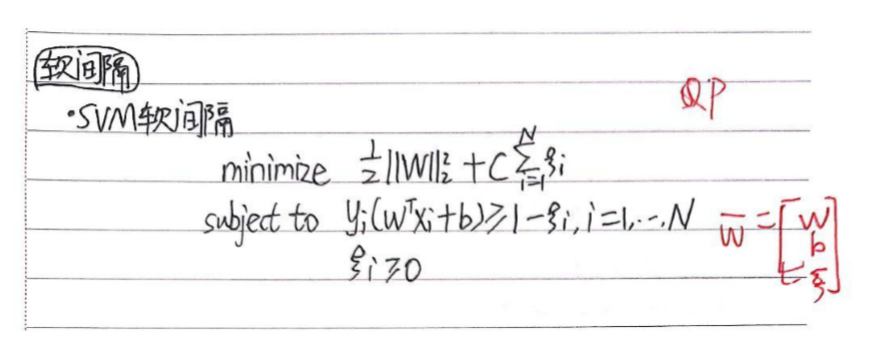 软间隔
·SVM软间隔
QP
minimize ½||W||₂² + C Σᵢ₌₁ᴺ ξi
subject to yᵢ(WᵀXᵢ+b) ≥ 1-ξi, i=1,...N
ξi ≥ 0
W̅ = [W b ξ]